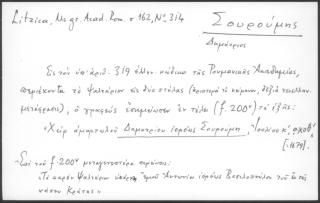 Litzica, Ms gr. Acad. Rom. σ 162, Nº 314
Σουρούμης
Δημήτριος.
Εις τον υπ' άριθ. 319 έλλην. κώδικα της Ρουμανικής Ακαδημίας,
περιέχοντα το Ψαλτήριον εις δύο στήλας (αριστερά το κείμενον, δεξιά νεοελλην.
μετάφρασις), ο γραφεύς εσημείωσεν εν τέλει (f. 200ᵛ) τα εξής:
«Χείρ αμαρτωλού Δημητρίου ιερέως Σουρούμη, Ιουλίου κ', αχοθ'»
[1679].
Επί του f. 200ᵛ μεταγενεστέρα σημείωσις:
«Το παρόν Ψαλτήριον υπάρχει εμού Αντωνίου ιερέως Βασιλοπούλου του εκ της
νήσου Κρήτης»